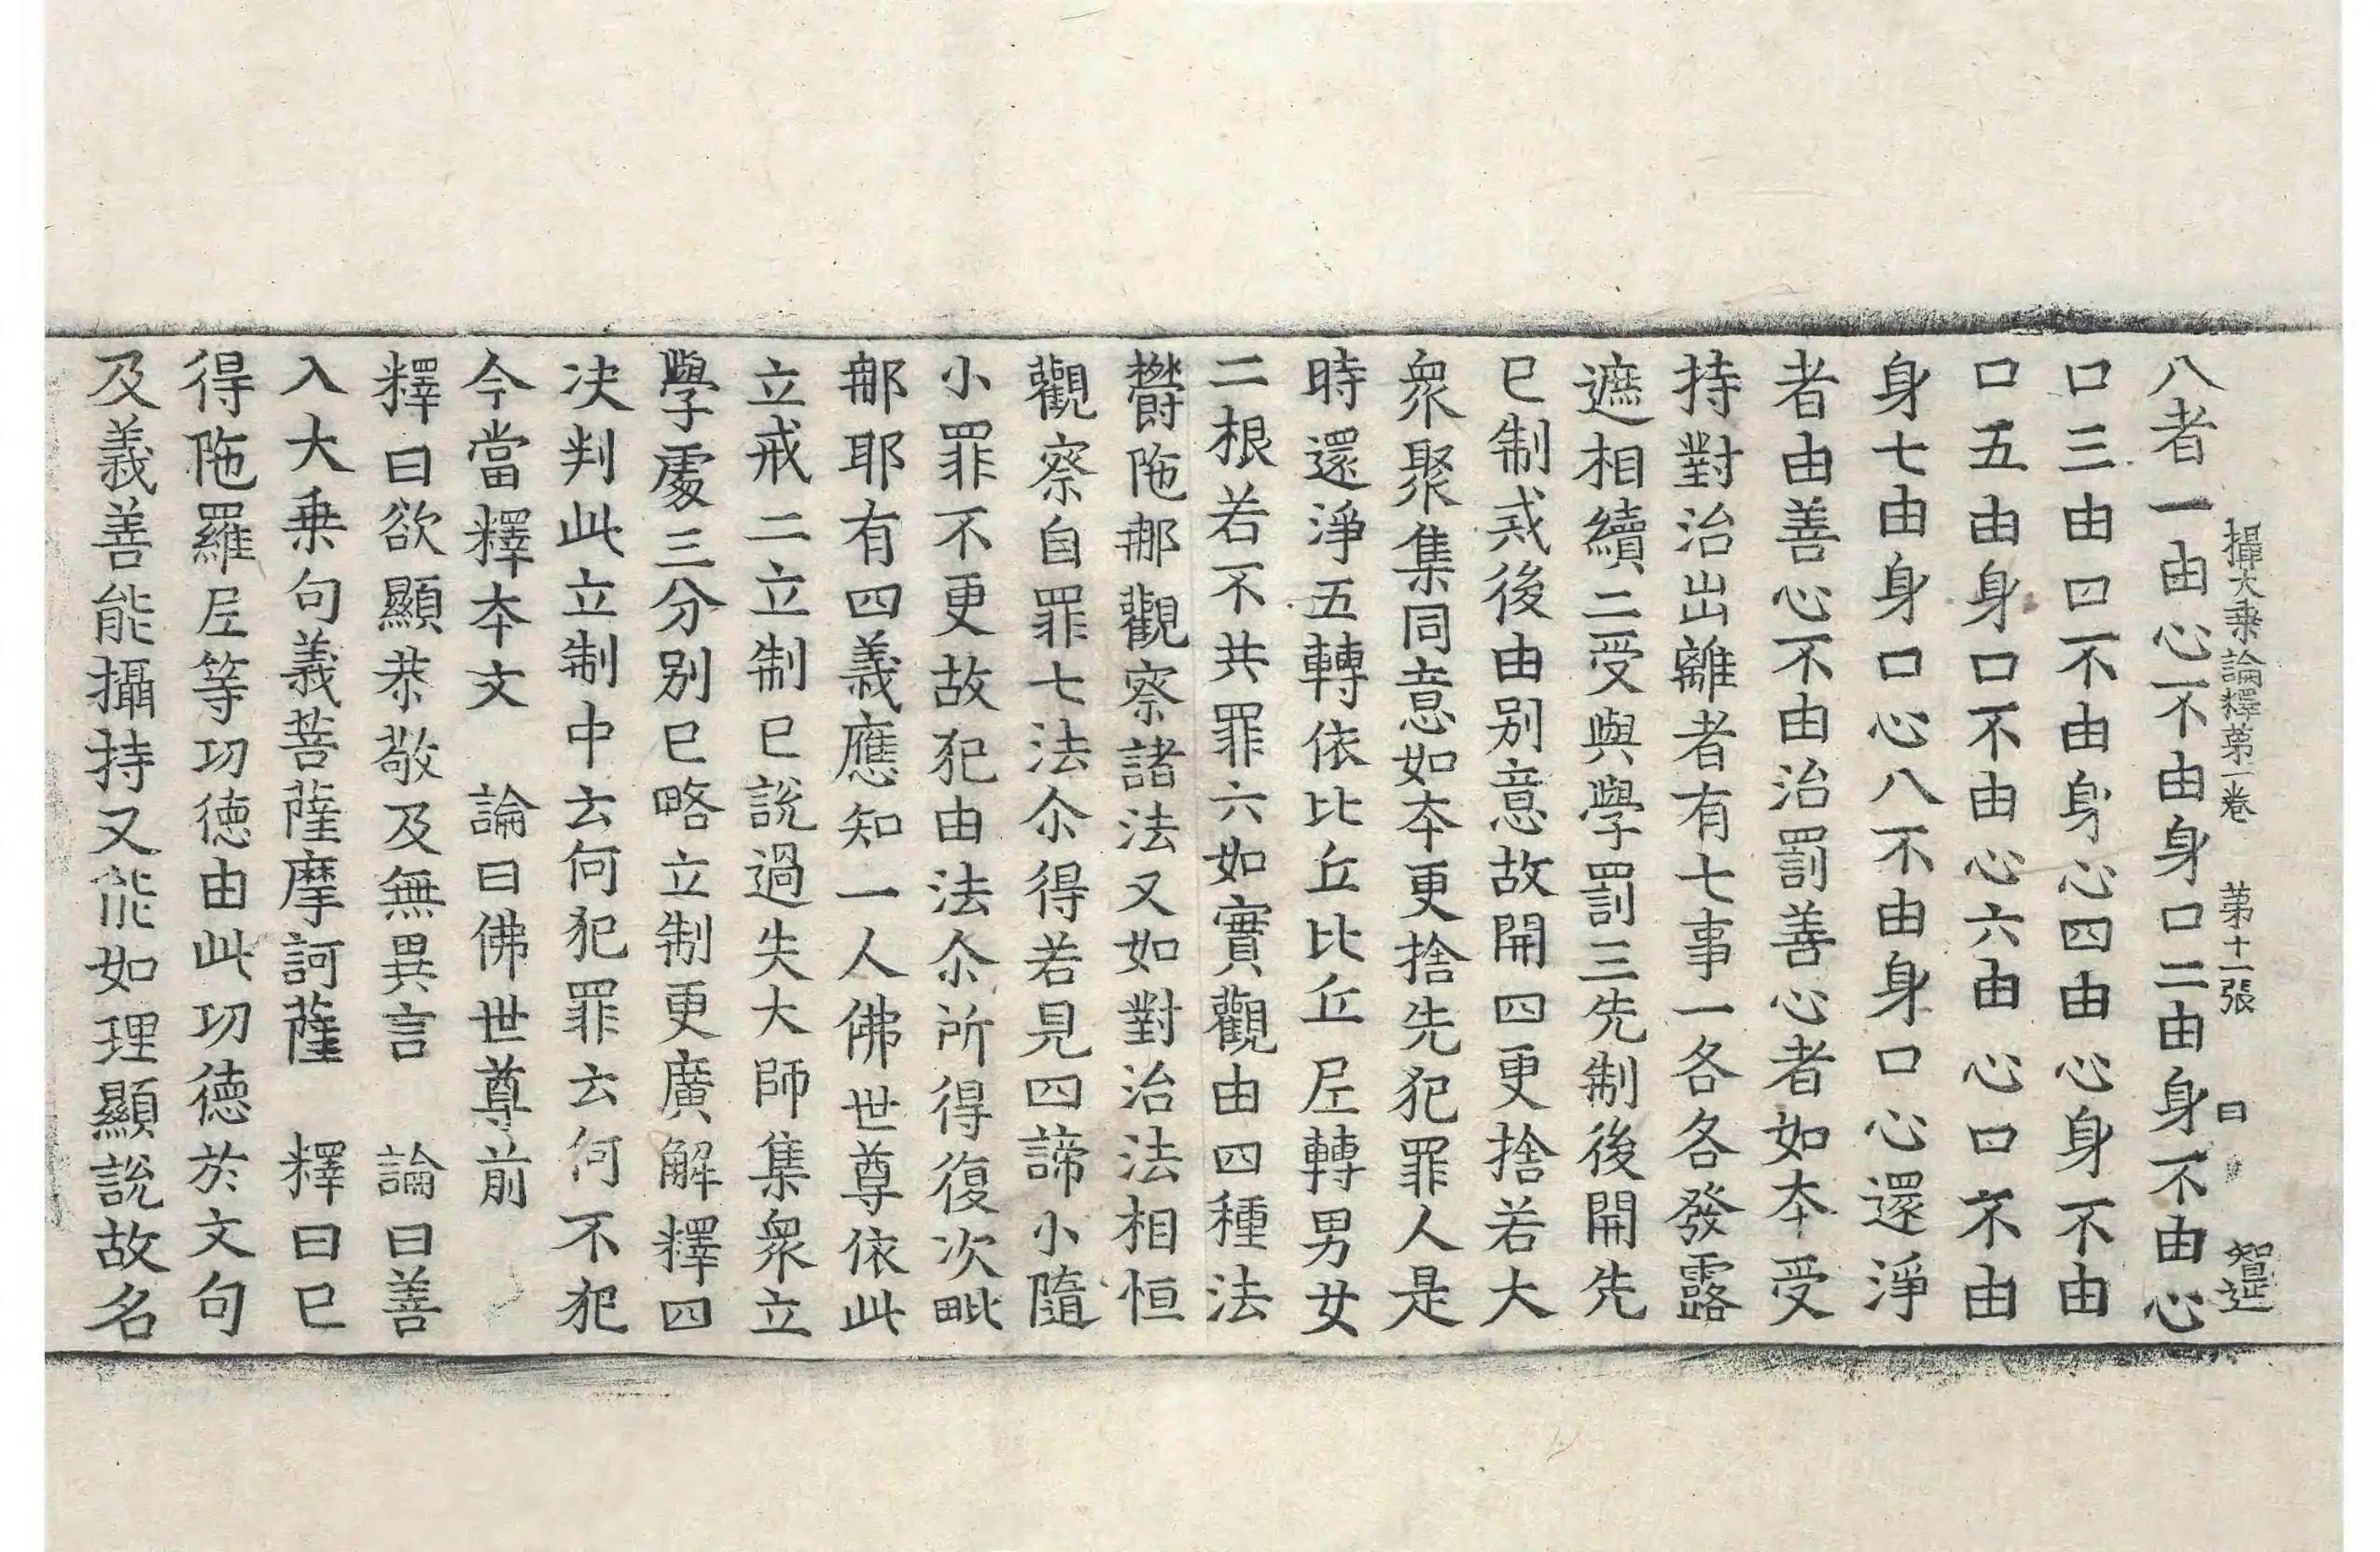 攝大乗論釋苐一卷 苐十一張 曰 智延
八者一由心不由身口二由身不由心
口三由口不由身心四由心身不由
口五由身口不由心六由心口不由
身七由身口心八不由身口心還淨
者由善心不由治罰善心者如夲受
持對治出離者有七事一各各發露
遮相續二受與學罰三先制後開先
已制戒後由别意故開四更捨若大
衆聚集同意如夲更捨先犯罪人是
時還淨五轉依比丘比丘尼轉男女
二根若不共罪六如實觀由四種法
欝陁那觀察諸法又如對治法相恒
觀察自罪七法尒得若見四諦小隨
小罪不更故犯由法尒所得復次毗
那耶有四義應知一人佛世尊依此
立戒二立制已說過失大師集衆立
學處三分别已略立制更廣解釋四
决判此立制中云何犯罪云何不犯
今當釋夲文 論曰佛世尊前
釋曰欲顯恭敬及無異言 論曰善
入大乗句義菩薩摩訶薩 釋曰已
得陁羅尼等功德由此功德於文句
及義善能攝持又能如理顯說故名